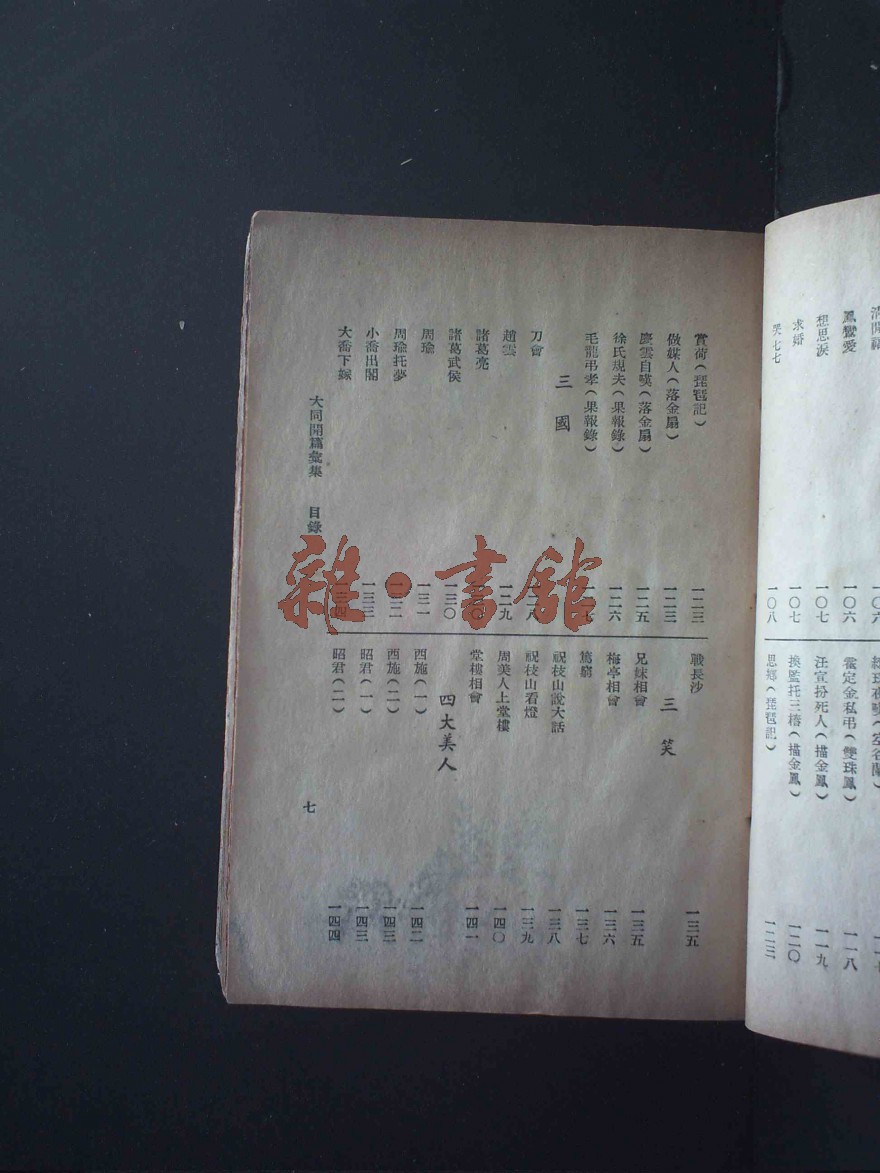 鳳鸞愛
想思淚 一〇六
求婚 一〇七
哭七七 一〇七
一〇八
霍定金私弔(雙珠鳳) 一一八
汪宣扮死人(描金鳳) 一一九
換監托三樁(描金鳳) 一二〇
思鄉(琵琶記) 一二二
賞荷(琵琶記) 一二三
做媒人(落金扇) 一二三
慶雲自嘆(落金扇) 一二五
徐氏規夫(果報錄) 一二六
毛龍弔孝(果報錄)
三國
刀會
趙雲 一二九
諸葛亮
諸葛武侯 一三〇
周瑜 一三一
周瑜托夢 一三二
小喬出閣 一三三
大喬下嫁 一三四
戰長沙 一三五
三笑
兄妹相會 一三五
梅亭相會 一三六
篤窮 一三七
祝枝山說大話 一三八
祝枝山看燈 一三九
周美人上堂樓 一四〇
堂樓相會 一四一
四大美人
西施(一) 一四二
西施(二) 一四三
昭君(一) 一四三
昭君(二) 一四四
大同開篇彙集 目錄
七
雜·書館